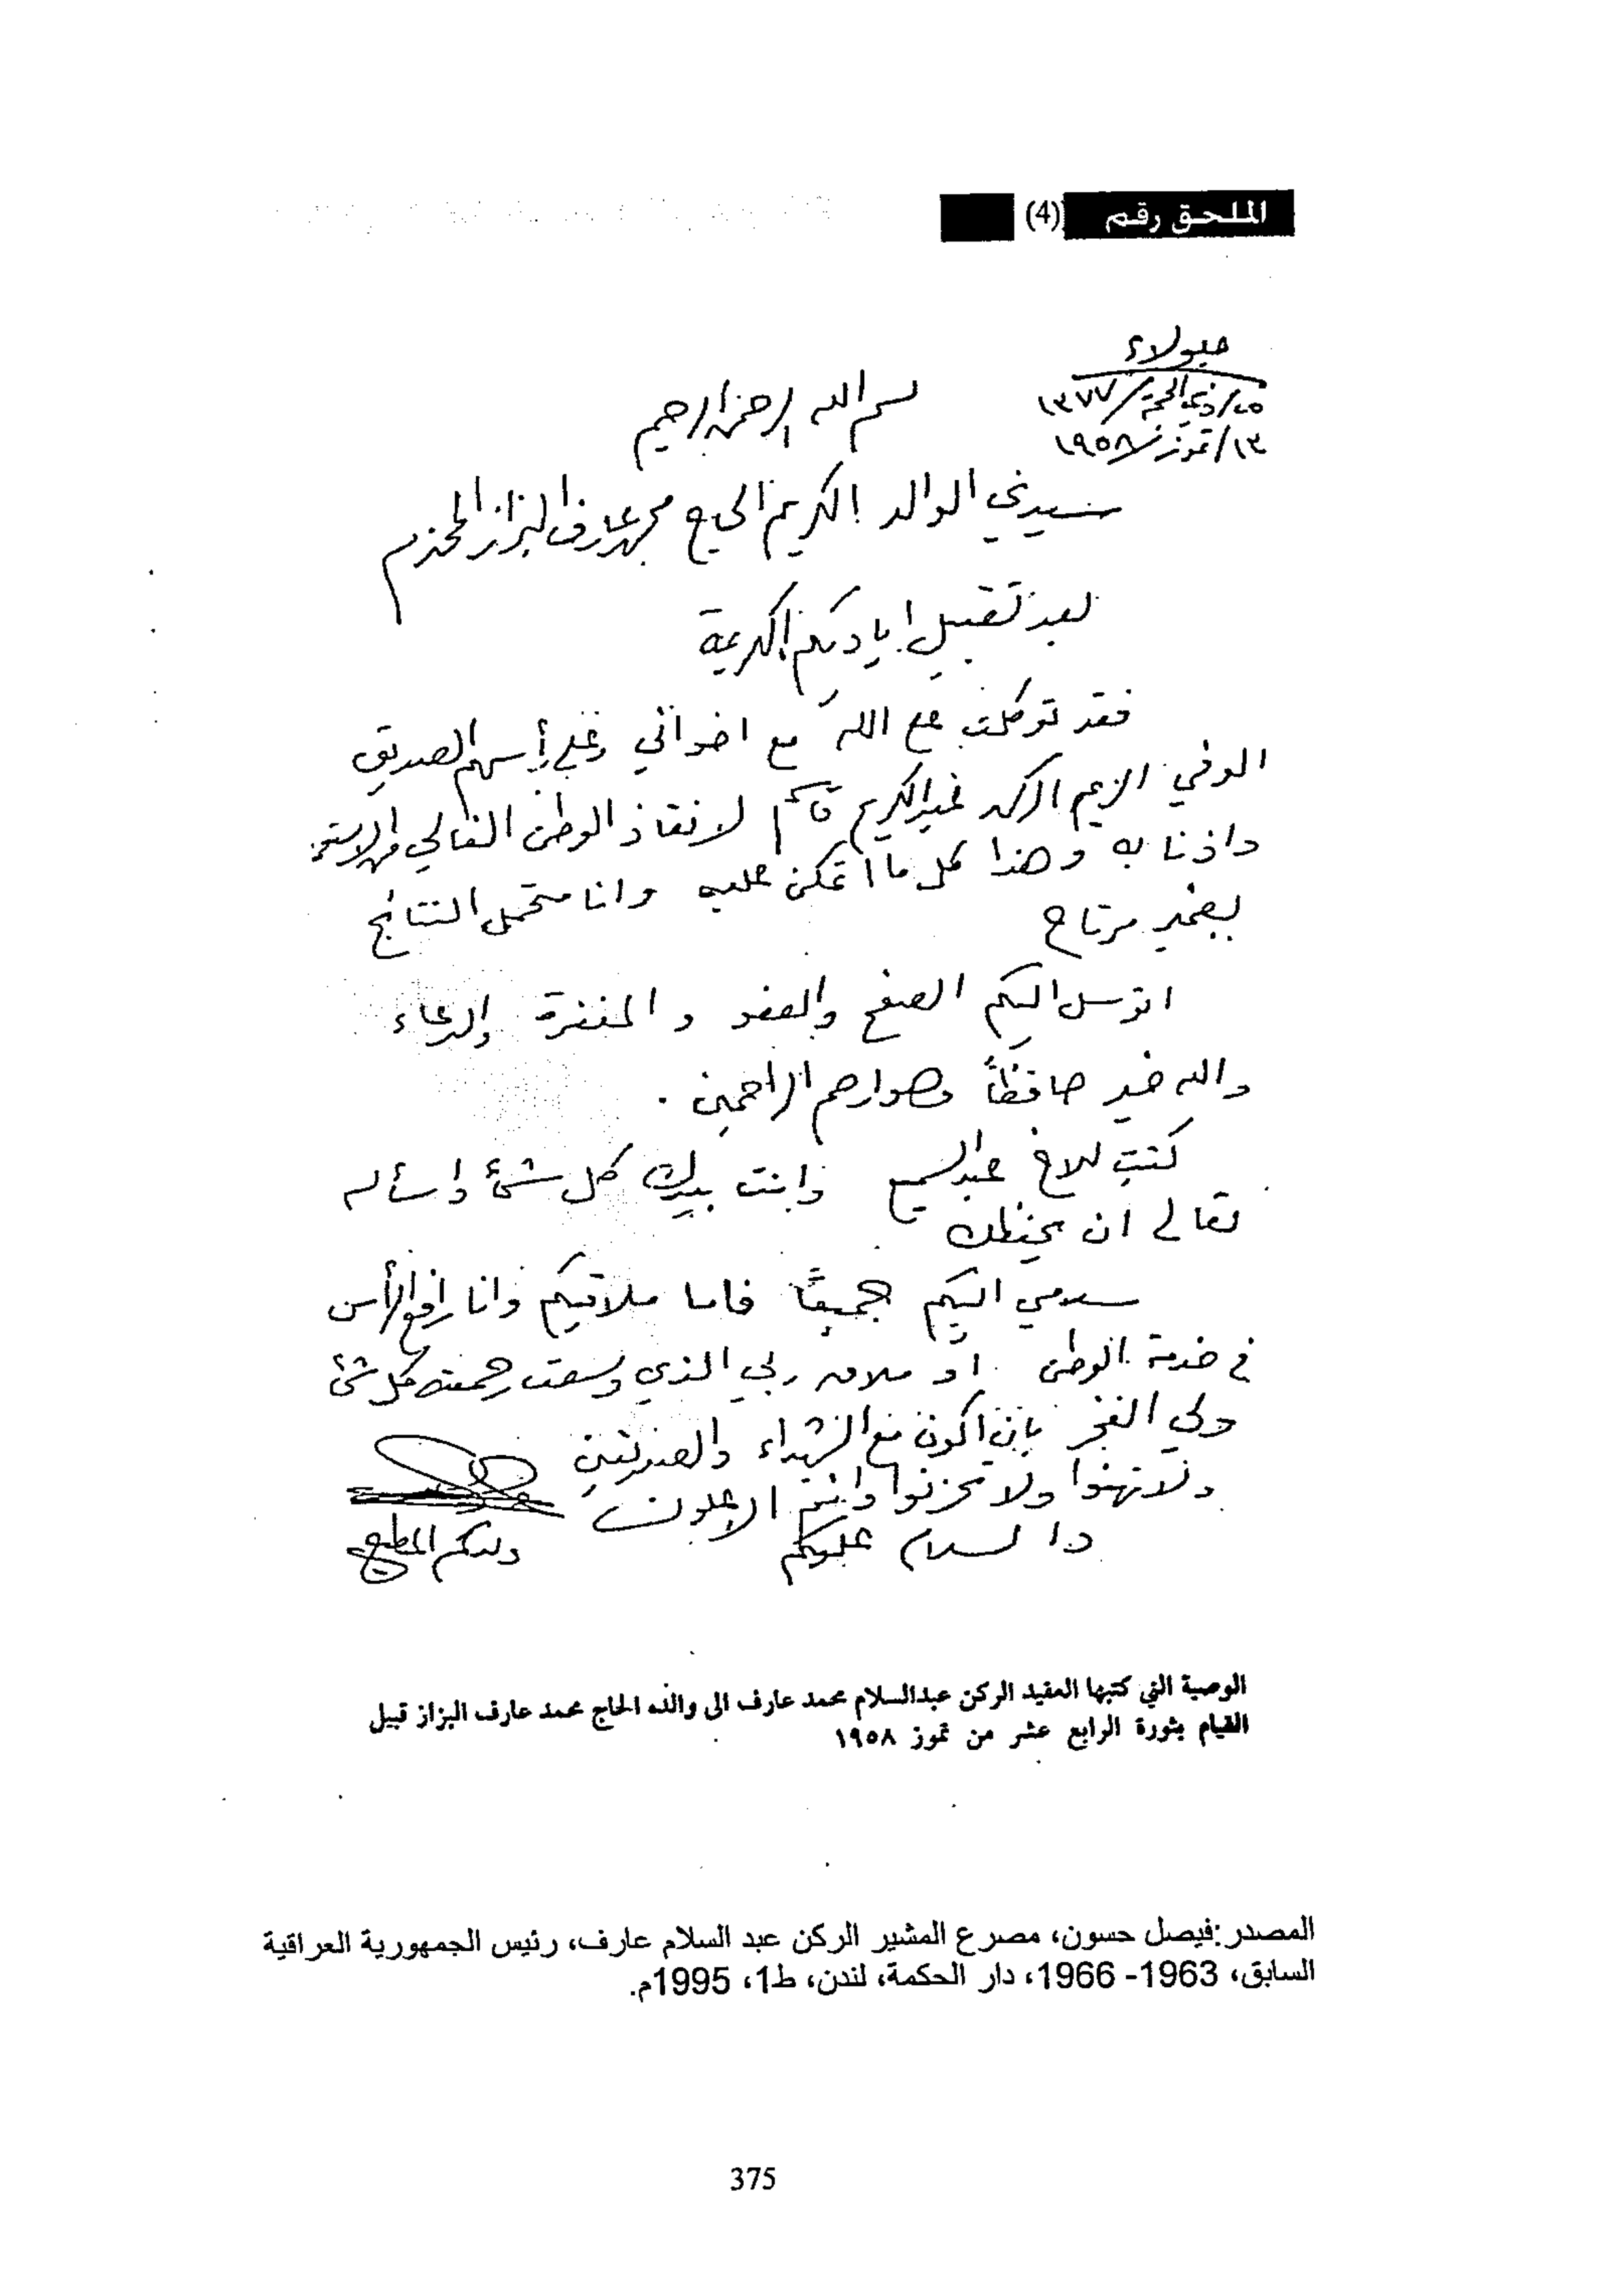 الملحق رقم (4)
جلولاء
٢٥/ذي الحجة/١٣٧٧
١٣/تموز/١٩٥٨
بسم الله الرحمن الرحيم
سيدي الوالد الكريم الحاج محمد عارف البزاز المحترم
بعد تقبيل اياديكم الكريمة
فقد توكلت على الله مع اخواني وعلى رأسهم الصديق
الوفي الزعيم الركن عبدالكريم قاسم لانقاذ الوطن الغالي من الاستعمار
واذنابه وهذا كل ما اتمكن عليه وانا متحمل النتائج
بضمير مرتاح
اتوسل اليكم الصفح والعفو والمغفرة والدعاء
والله خير حافظاً وهو ارحم الراحمين .
كتبت للاخ عبدالسميع وانت بيدك كل شئ واسأله
تعالى ان يحفظك
سلامي اليكم جميعاً فاما ملاقيكم وانا رافع الرأس
في خدمة الوطن او ملاق ربي الذي وسعت رحمته كل شئ
ولي الفخر بان اكون مع الشهداء والصديقين
ولا تهنوا ولا تحزنوا وانتم الاعلون
والسلام عليكم
ولدكم المطيع
الوصية التي كتبها العقيد الركن عبدالسلام محمد عارف الى والده الحاج محمد عارف البزاز قبيل
القيام بثورة الرابع عشر من تموز ١٩٥٨
المصدر:فيصل حسون، مصرع المشير الركن عبد السلام عارف، رئيس الجمهورية العراقية
السابق، 1963- 1966، دار الحكمة، لندن، ط1، 1995م.
375